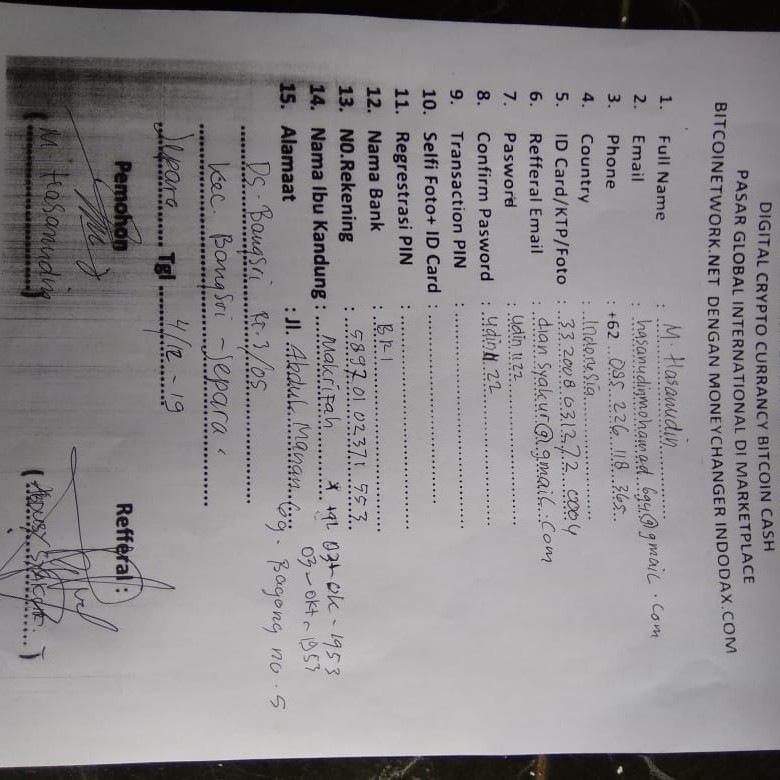 DIGITAL CRYPTO CURRENCY BITCOIN CASH
PASAR GLOBAL INTERNATIONAL DI MARKETPLACE
BITCOINETWORK.NET DENGAN MONEYCHANGER INDODAX.COM
1. Full Name : M. Hasanudin
2. Email : hasanudinmohamad.694@gmail.com
3. Phone : +62 085 226 118 365
4. Country : Indonesia
5. ID Card/KTP/Foto : 33 2008 031272 0004
6. Refferal Email : dian syakur@.gmail.com
7. Pasword : Udin 1122
8. Confirm Pasword : Udin 1122
9. Transaction PIN :
10. Selfi Foto+ ID Card :
11. Regrestrasi PIN :
12. Nama Bank : BRI
13. NO.Rekening : 5897 01 02371 553
14. Nama Ibu Kandung : Makrifah 03-ok-1953
03-okt-1953
15. Alamaat : Jl. Abdul Manan Gg. Bagong no. 5
Ds. Bangsri Rt. 3/05
Kec. Bangsri - Jepara
Jepara Tgl 4/12-19
Pemohon Refferal :
( M Hasanudin ) ( )